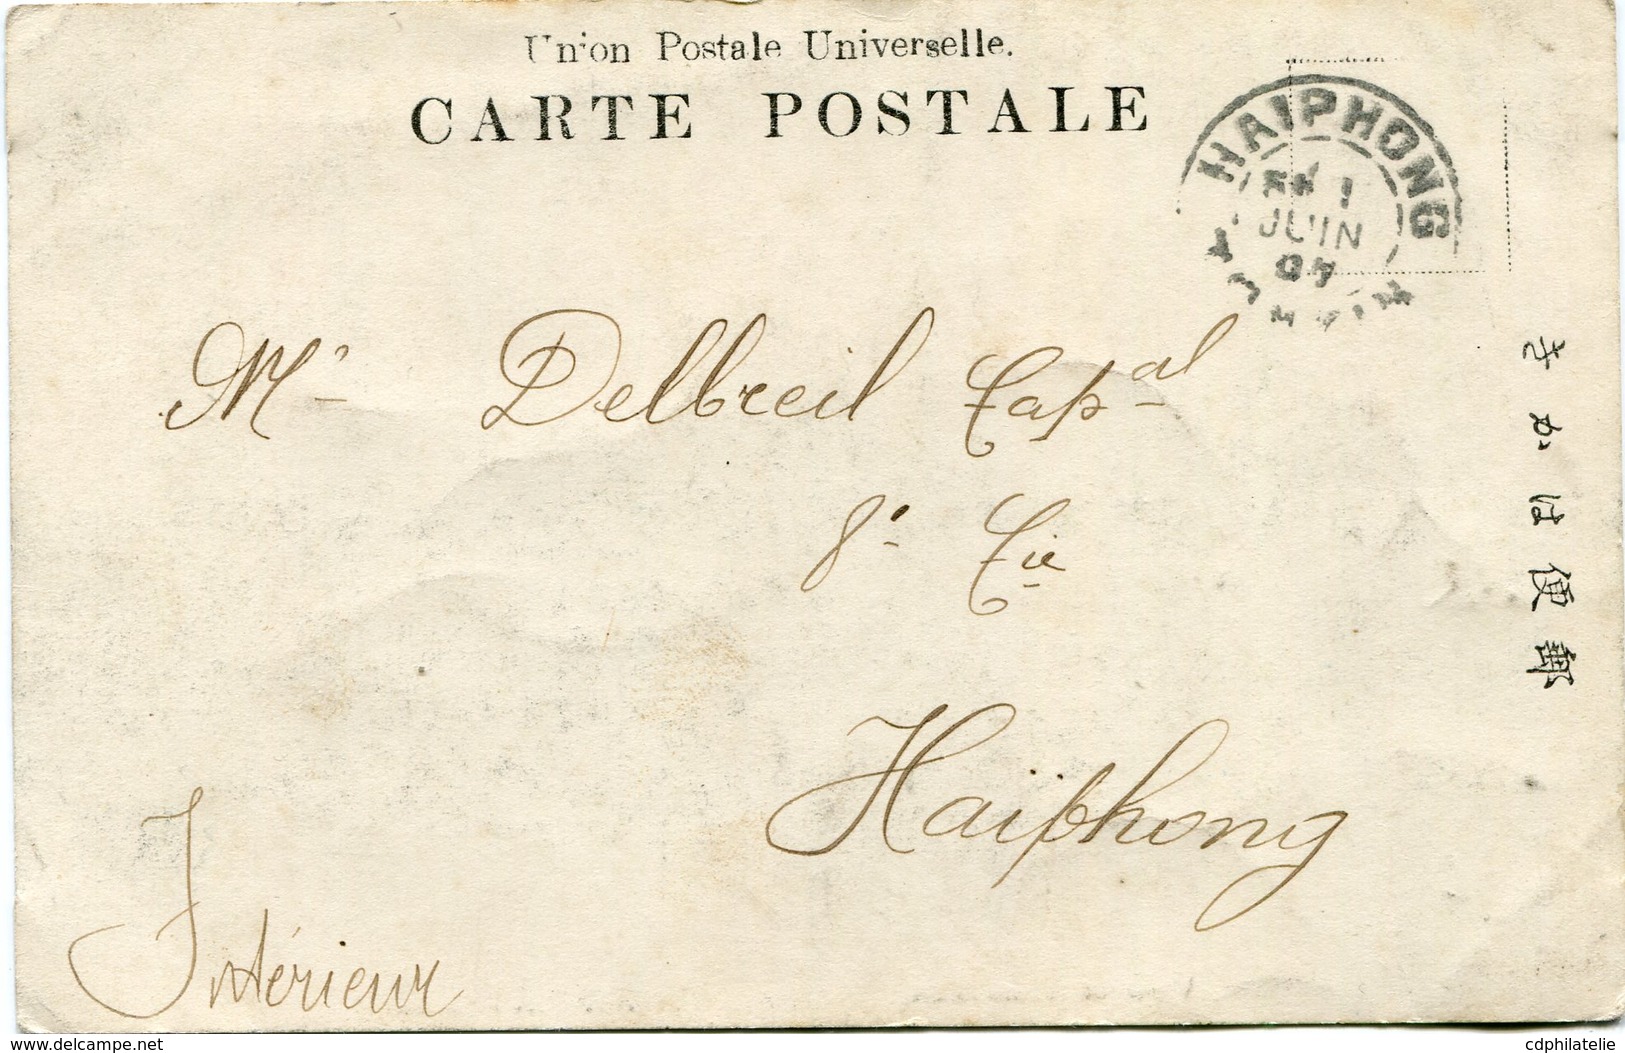 Union Postale Universelle.
CARTE POSTALE
HAIPHONG
1
JUIN
きかは便郵
Mr Delbreil Capal
8e Cie
Haïphong
Intérieur
delcampe.net
cdphilatelie